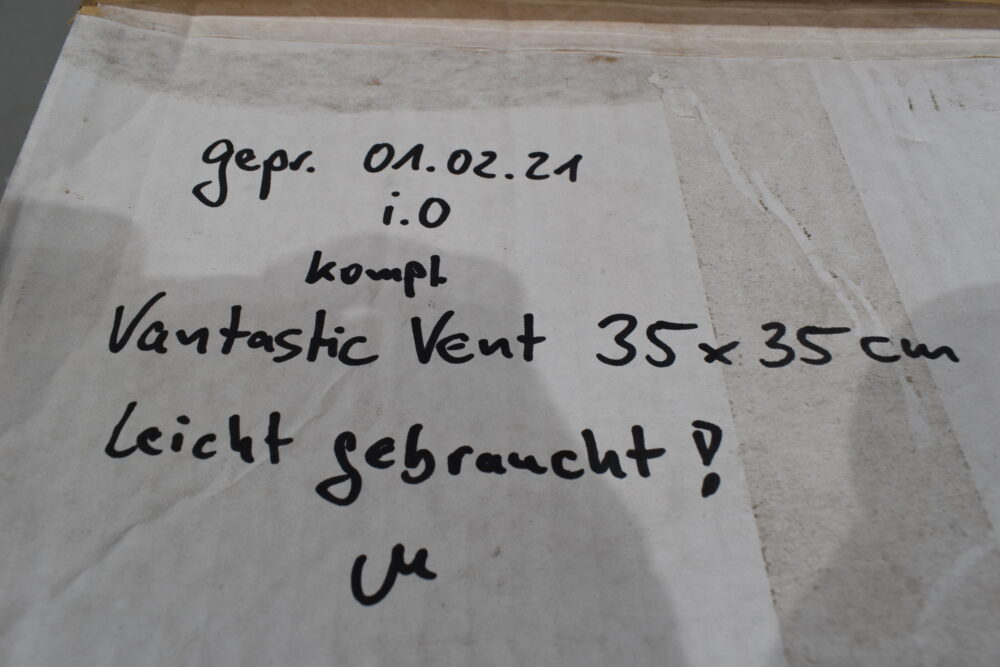 gepr. 01.02.21
i.O
kompl.
Vantastic Vent 35x35 cm
Leicht gebraucht!